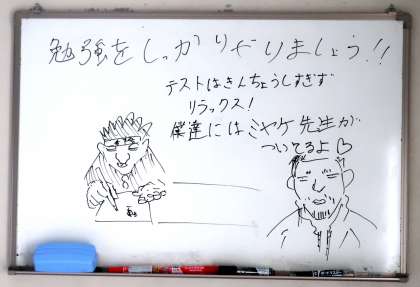 勉強をしっかりやりましょう!!
テストはきんちょうしすぎず
リラックス!
僕達にはミヤケ先生が
ついてるよ♡